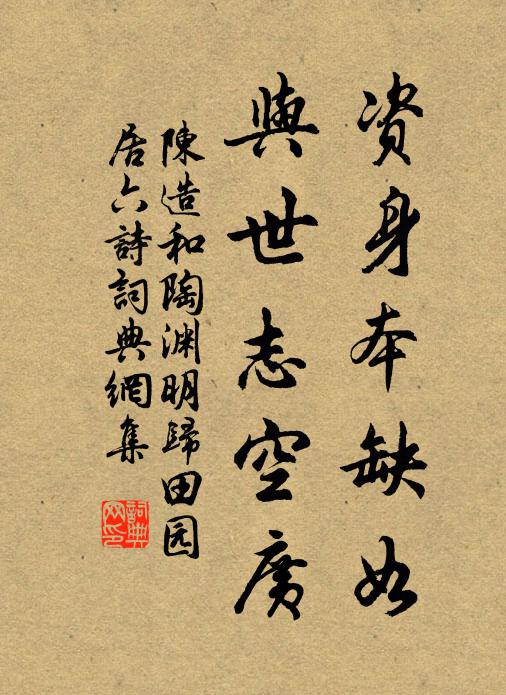 資身本缺如
與世志空廣
陳造和陶淵明歸田园
居六詩詞典網集
詞典
网印